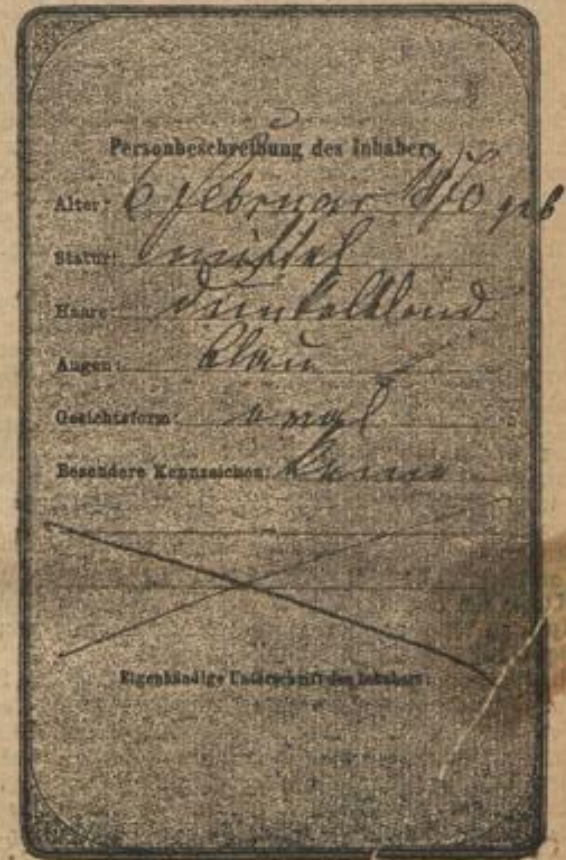 Personbeschreibung des Inhabers.
Alter: 6 Februar 1870 geb
Statur: mittel
Haare: dunkelblond
Augen: blau
Gesichtsform: oval
Besondere Kennzeichen: keine
Eigenhändige Unterschrift des Inhabers: